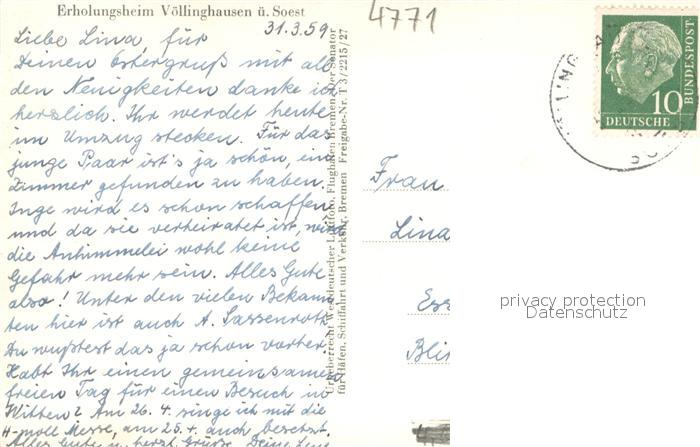 Erholungsheim Völlinghausen ü. Soest
4771
31.3.59
Liebe Lina, für
Deinen Ostergruß mit all
den Neuigkeiten danke ich
herzlich. Ihr werdet heute
im Umzug stecken. Für das
junge Paar ist's ja schön, ein
Zimmer gefunden zu haben.
Inge wird es schon schaffen
und da sie verheiratet ist, wird
die Anhimmelei wohl keine
Gefahr mehr sein. Alles Gute
also! Unter den vielen Bekann
ten hier ist auch A. Sassenroth,
Du wußtest das ja schon vorher.
Habt Ihr einen gemeinsamen
freien Tag für einen Besuch in
Witten? Am 26.4. singe ich mit die
H-moll Messe, am 25.4. auch besetzt.
Alles Gute u. herzl. Grüße, Deine
Urheberrecht Westdeutscher Luftfoto, Flughafen Bremen, der Senator
für Häfen, Schiffahrt und Verkehr, Bremen Freigabe-Nr. T 3/2215/27
10
DEUTSCHE
BUNDESPOST
Frau
Lina
Ess
privacy protection
Datenschutz